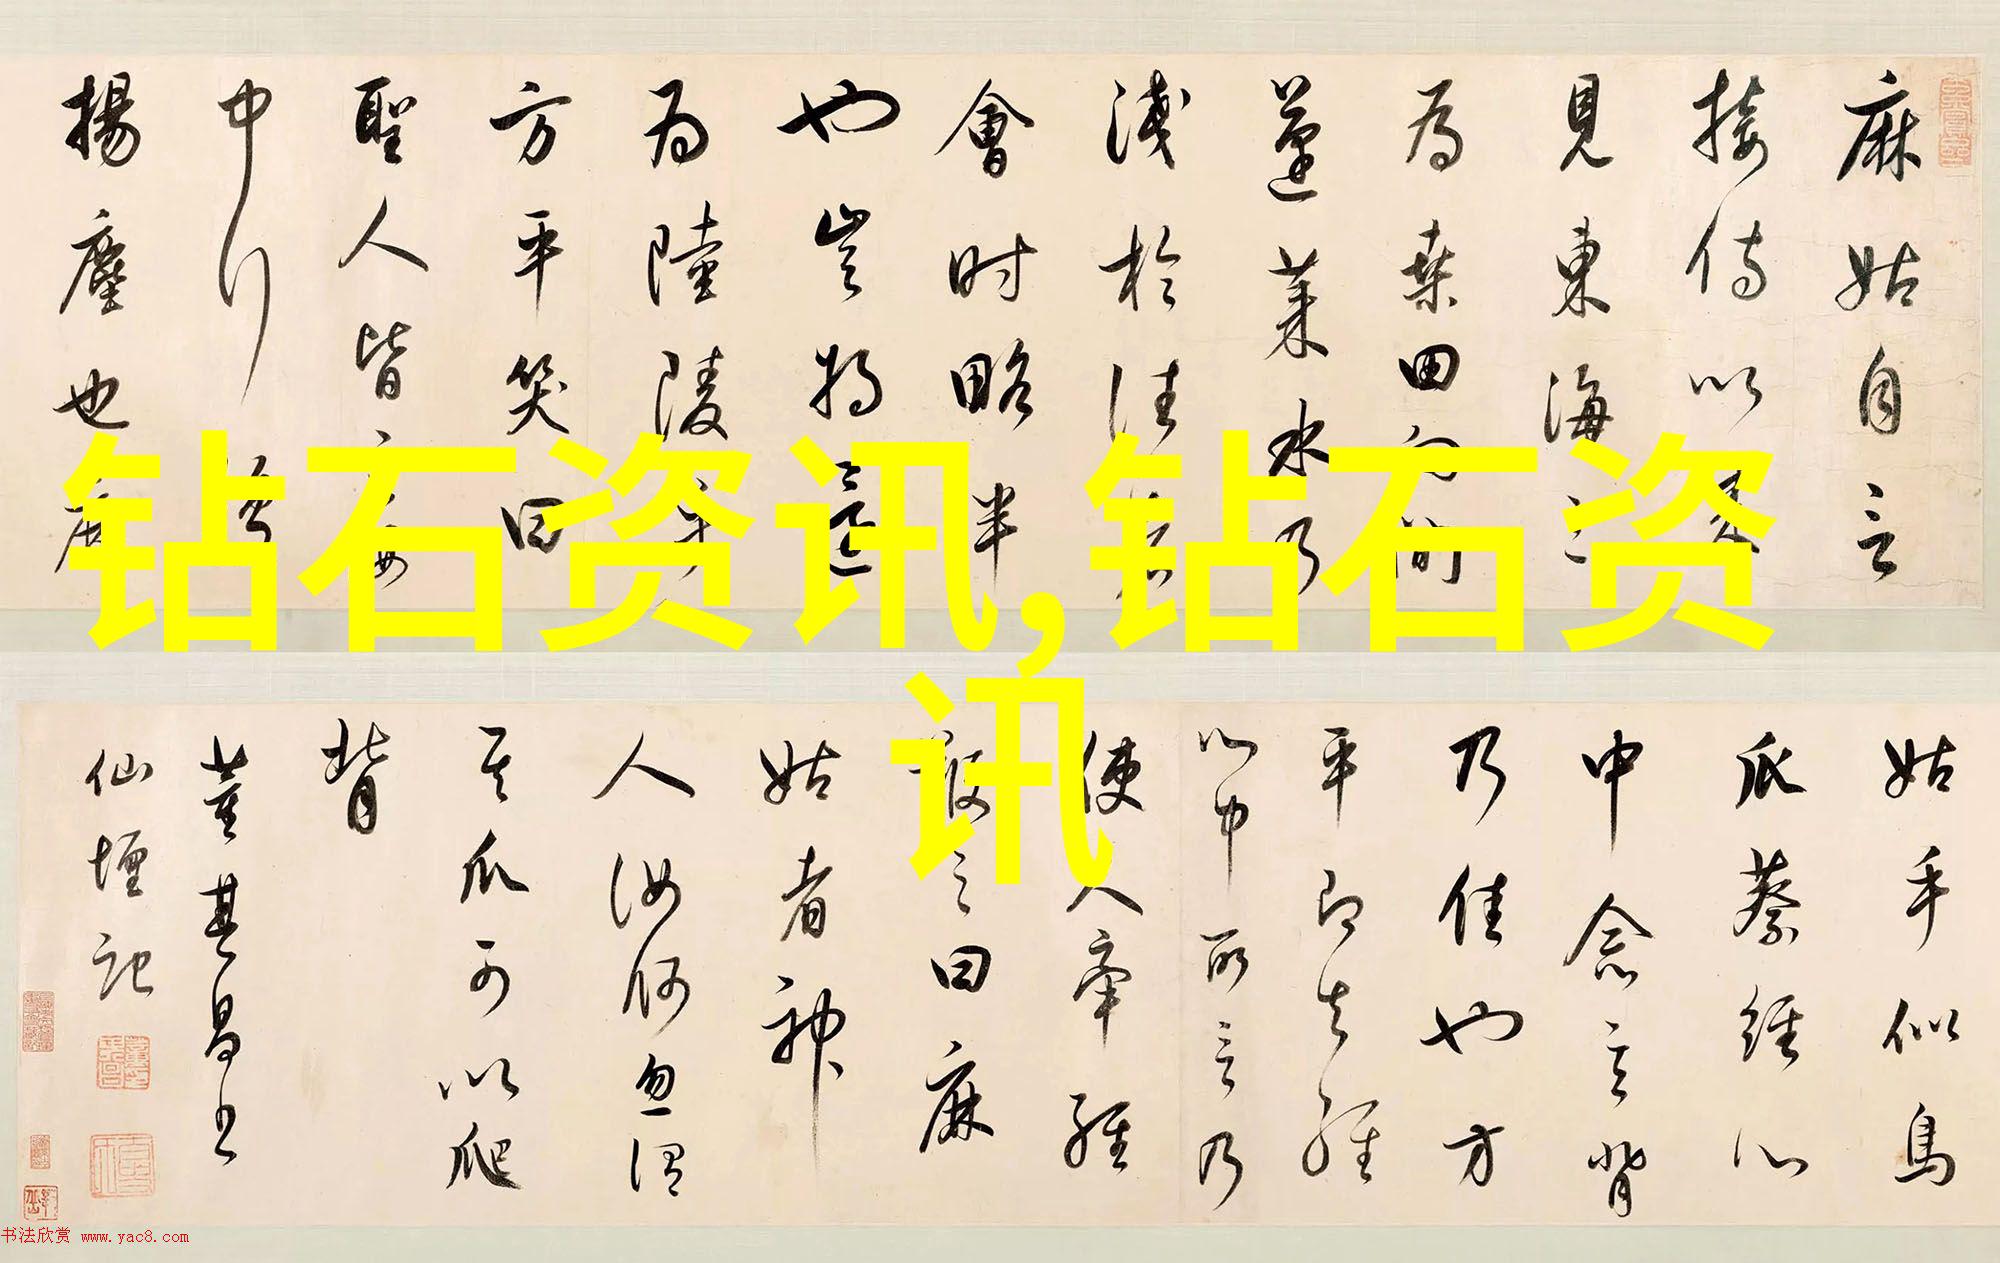 麻姑自言
接侍以來
見東海三
為桑田向間
蓬萊水乃
淺於往者
會時略半
也豈將還
為陸陵乎
方平笑曰
聖人皆言海
中行復
揚塵也麻
钻石资讯,钻石资
讯
姑手似鳥
爪蔡經心
中念言背
乃佳也方
平即知經
心中所言乃
使人牽經
鞭之曰麻
姑者神
人汝何忽謂
其爪可以爬
背
董其昌書
仙壇記
书法欣赏 www.yac8.com